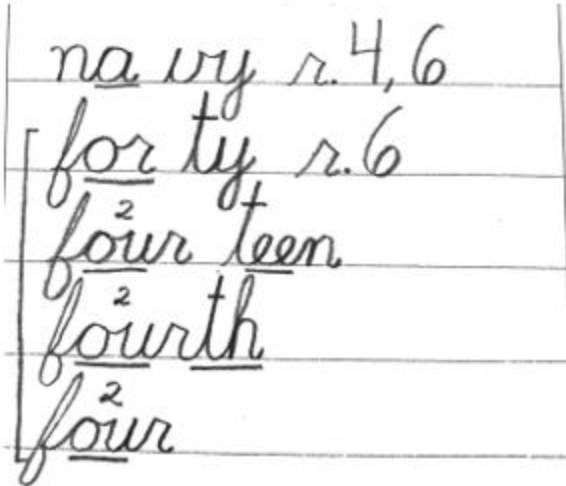 na vy r. 4, 6
for ty r. 6
four² teen
four²th
four²